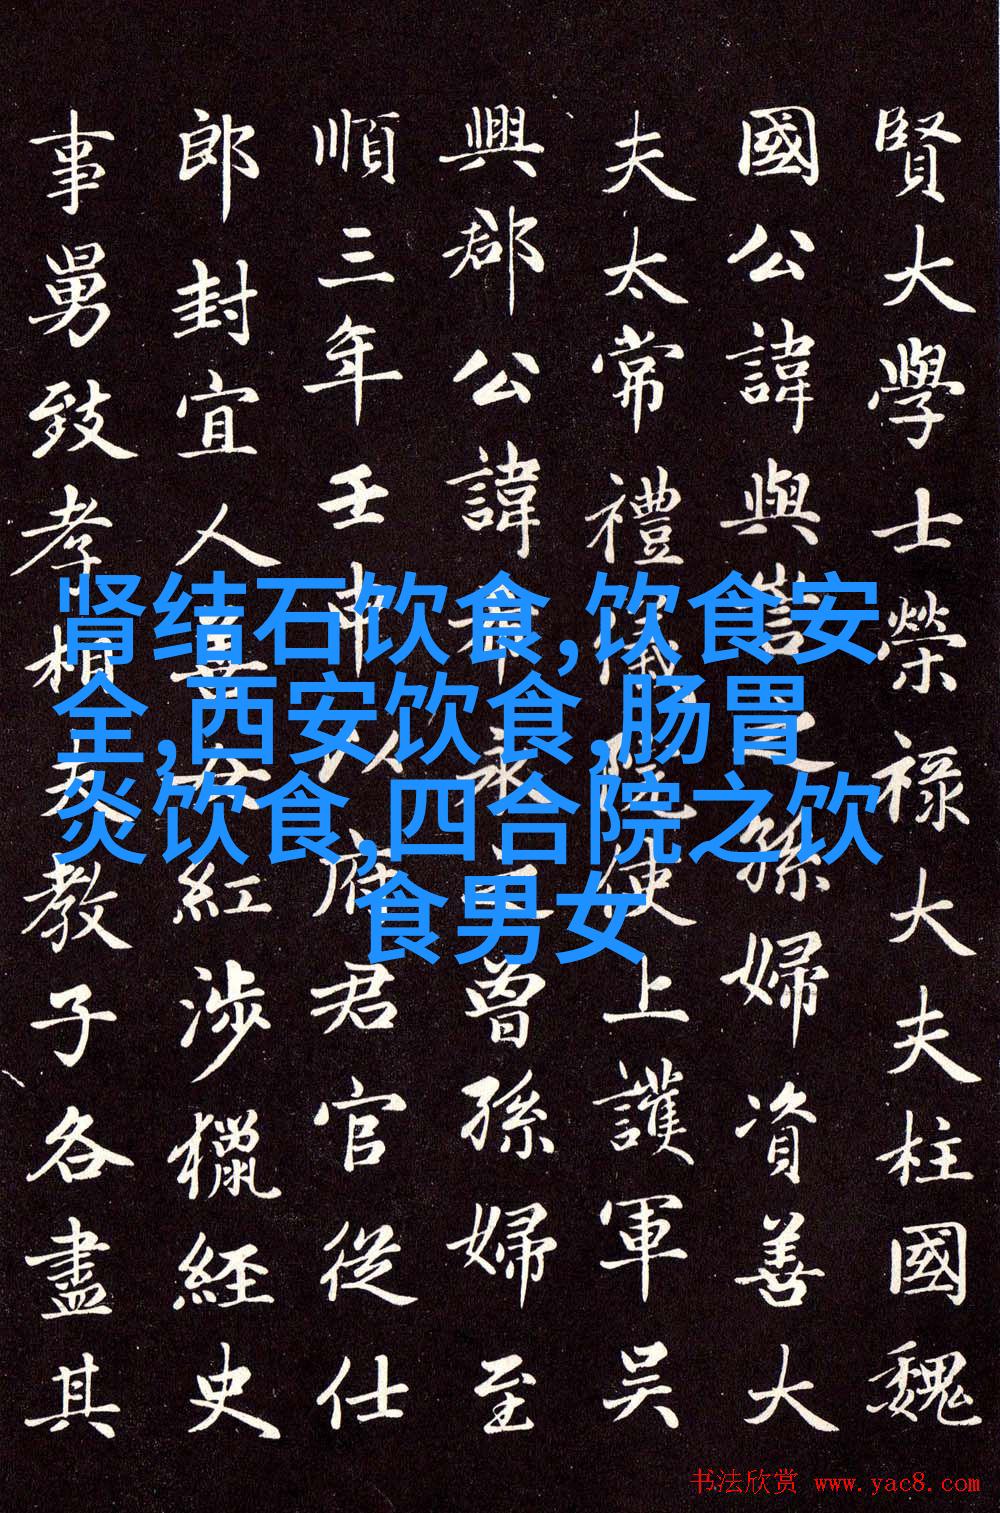 賢大學士榮祿大夫柱國魏
國公諱與訔之孫婦資善大
夫太常禮儀院使上護軍吳
興郡公諱希永之曾孫婦至
順三年壬申以府君官從仕
郎封宜人女紅涉獵經史
事舅致孝相夫教子各盡其
肾结石饮食,饮食安
全,西安饮食,肠胃
炎饮食,四合院之饮
食男女
书法欣赏 www.yac8.com